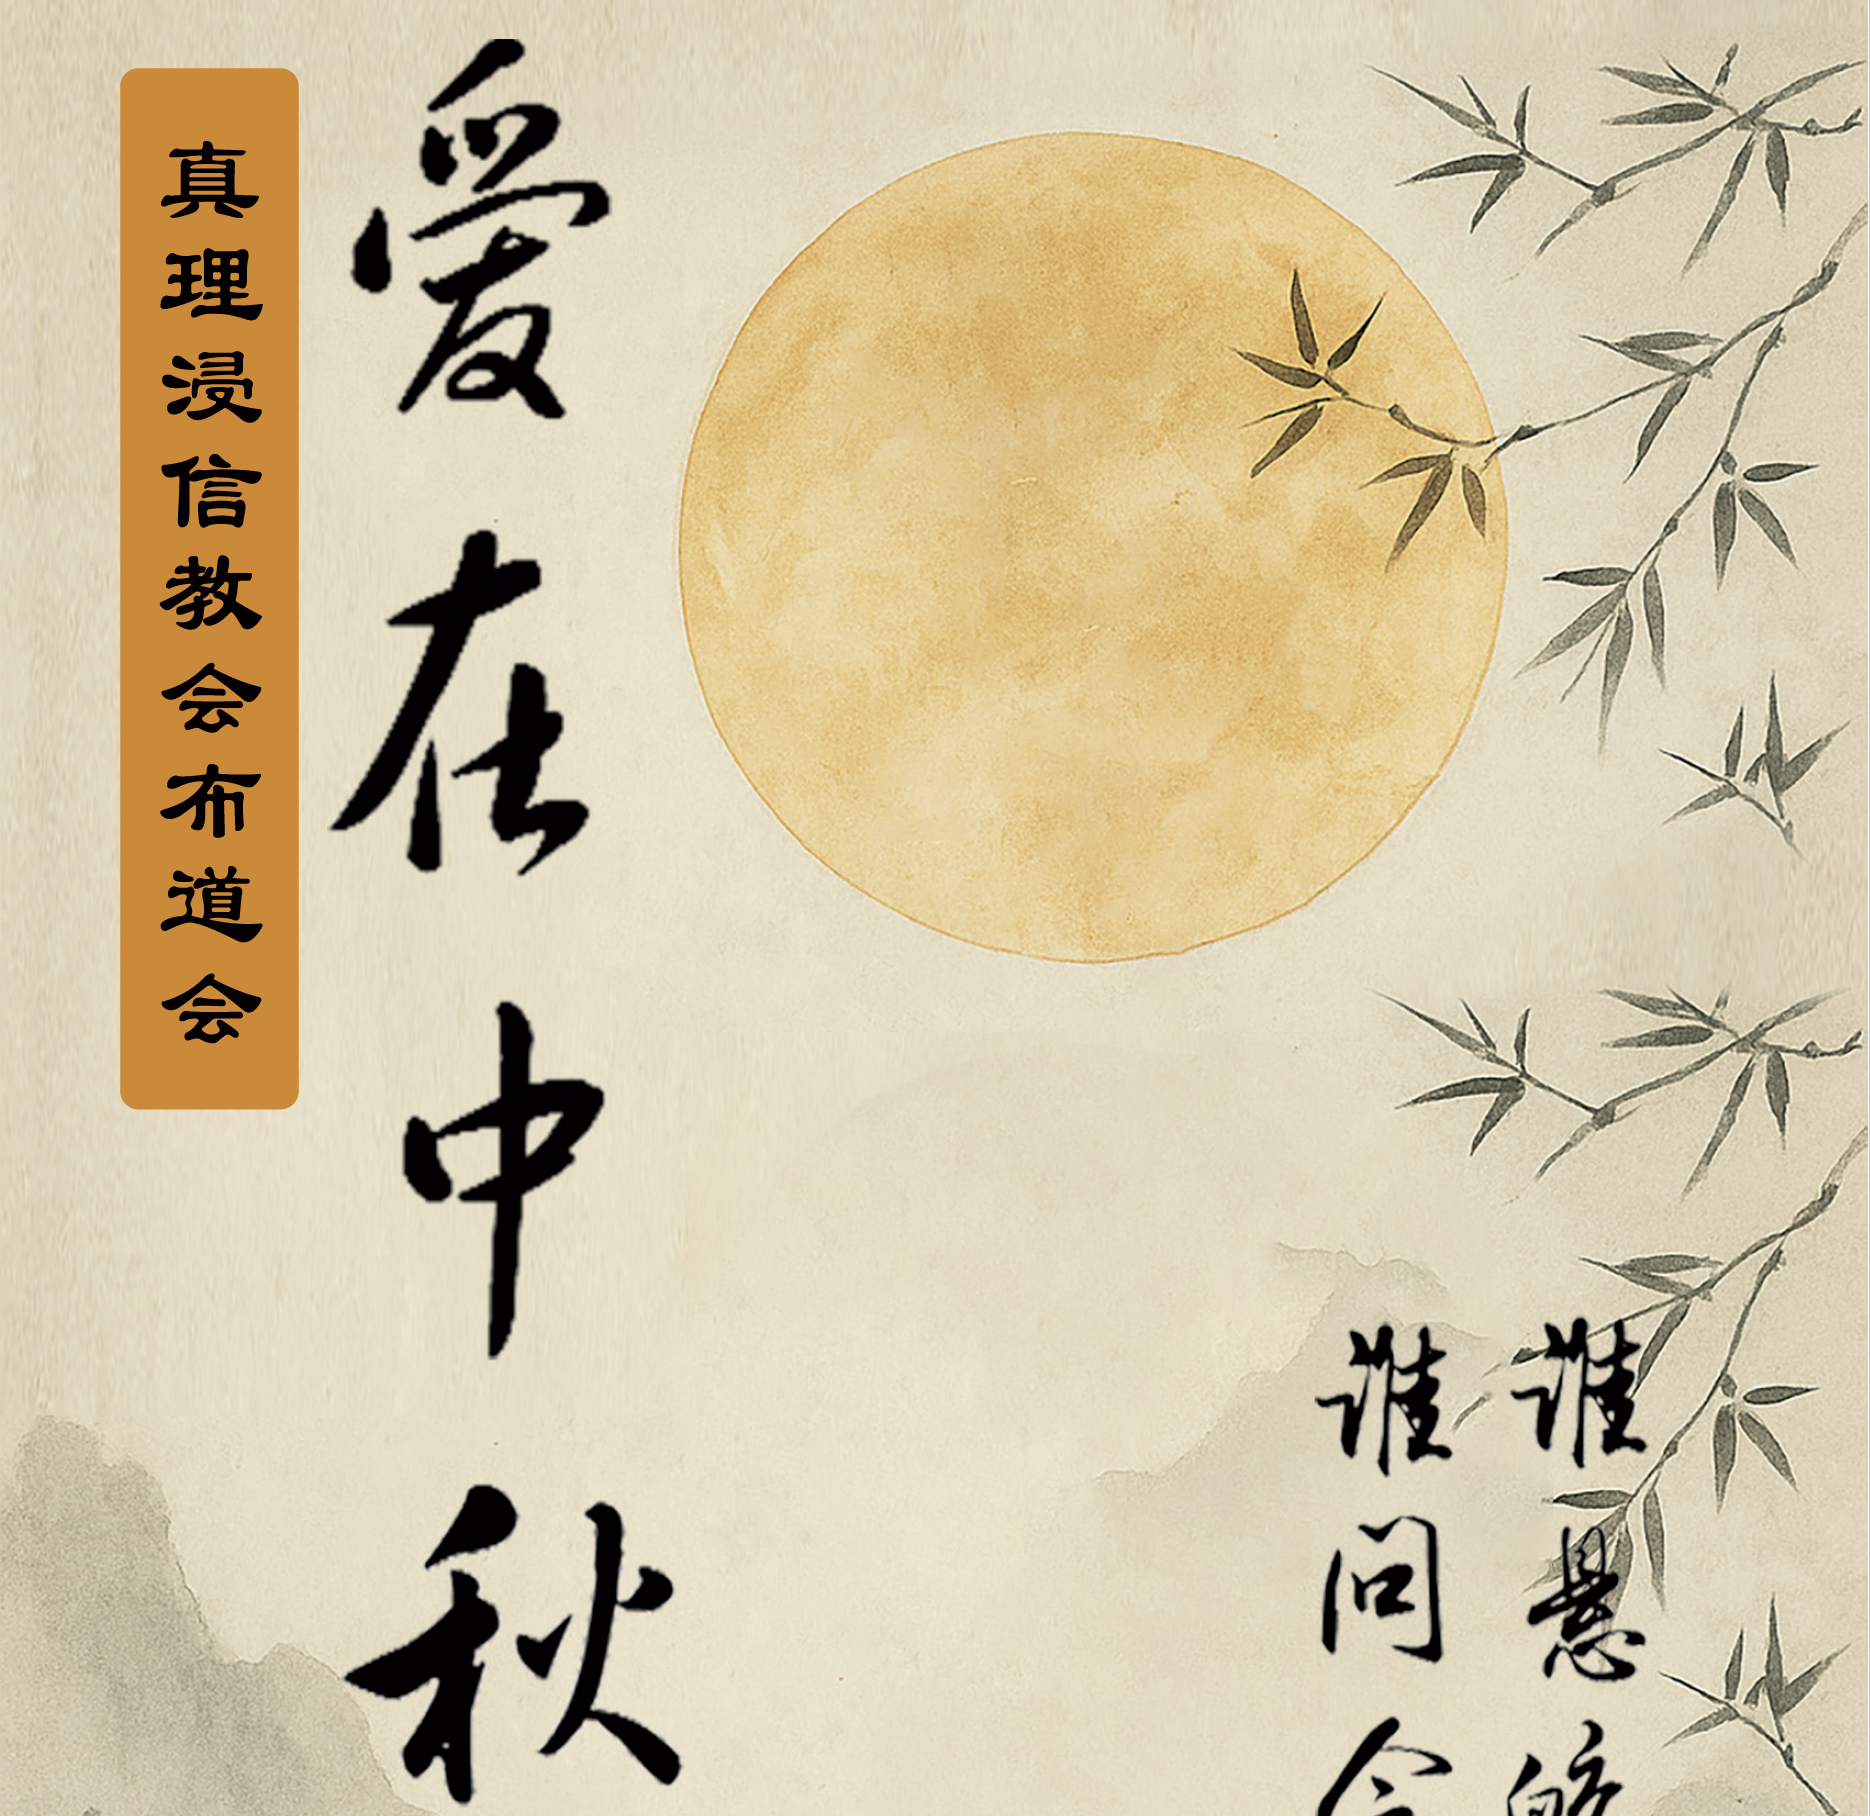 真理浸信教会布道会
爱在中秋
谁悬
谁问今